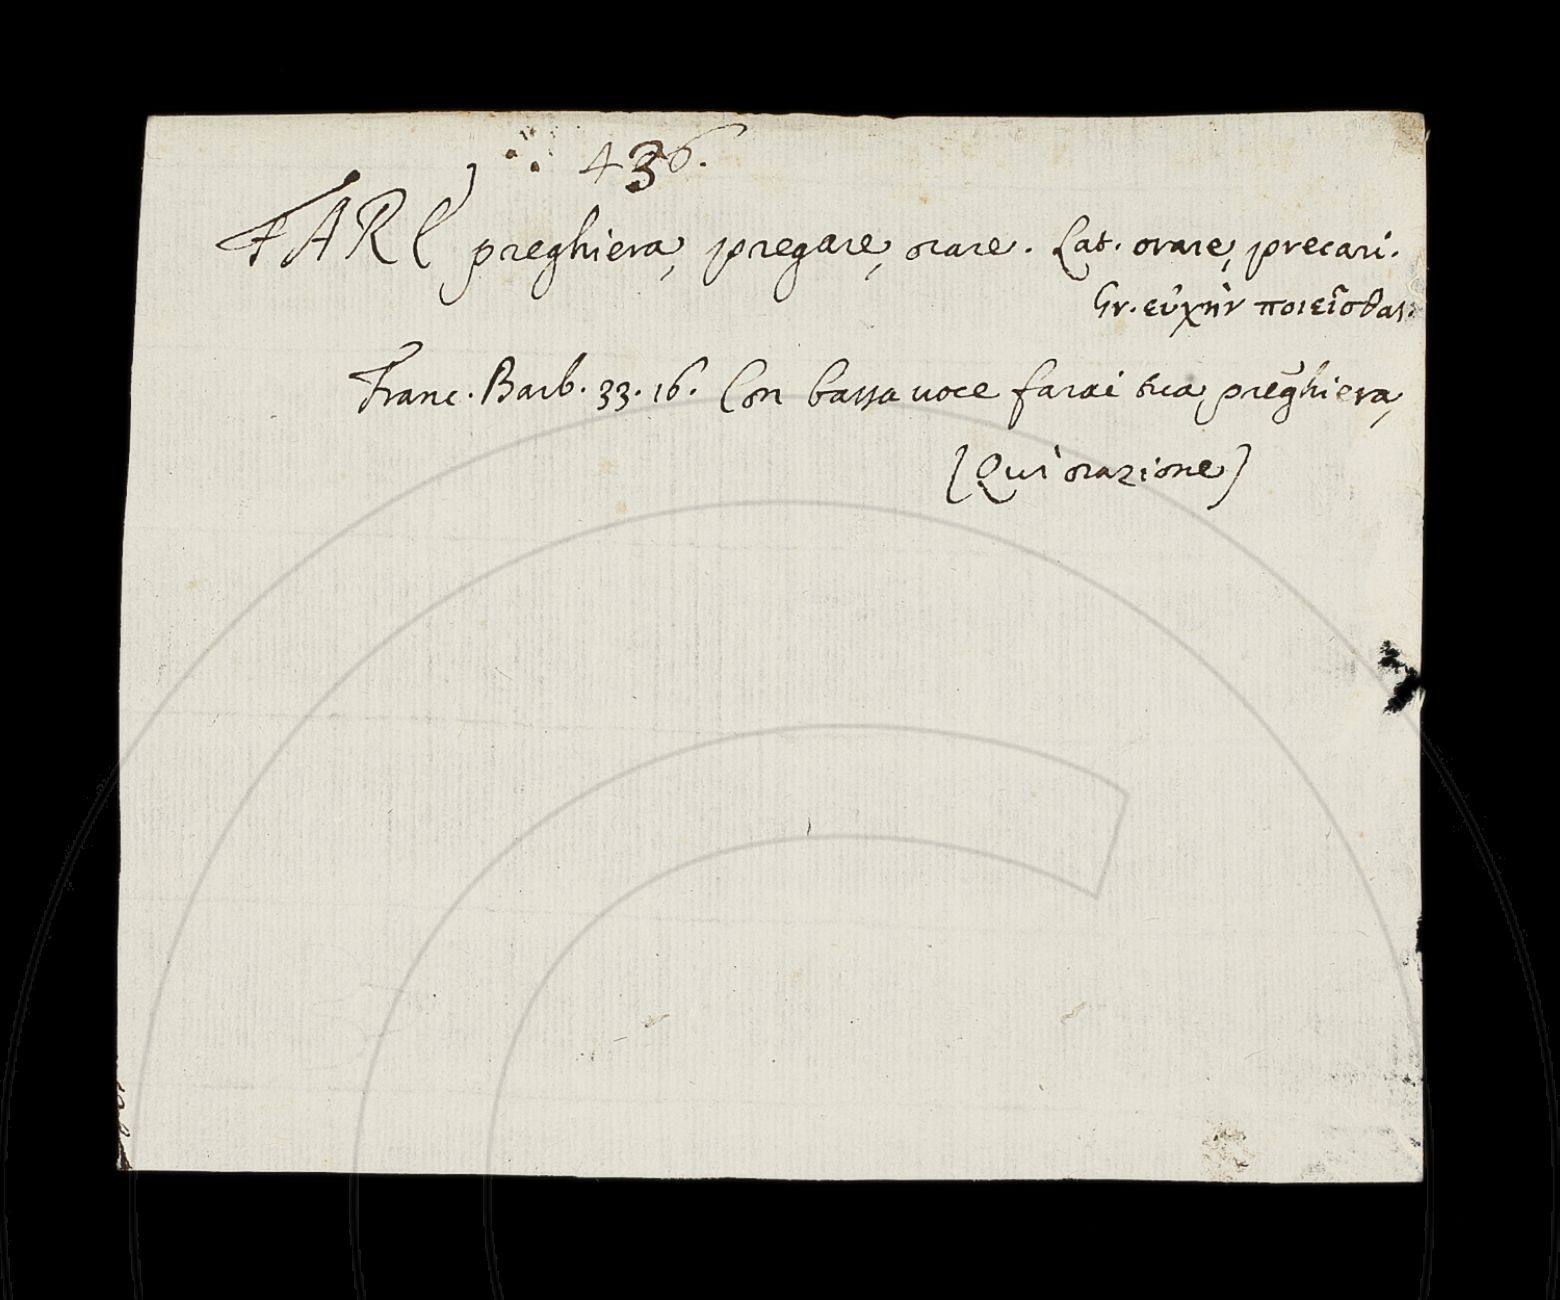 436.
FARE preghiera, pregare, orare. Lat. orare, precari.
Gr. εὐχὴν ποιεῖσθαι.
Franc. Barb. 33. 16. Con bassa uoce farai tua preghiera,
(Qui orazione)